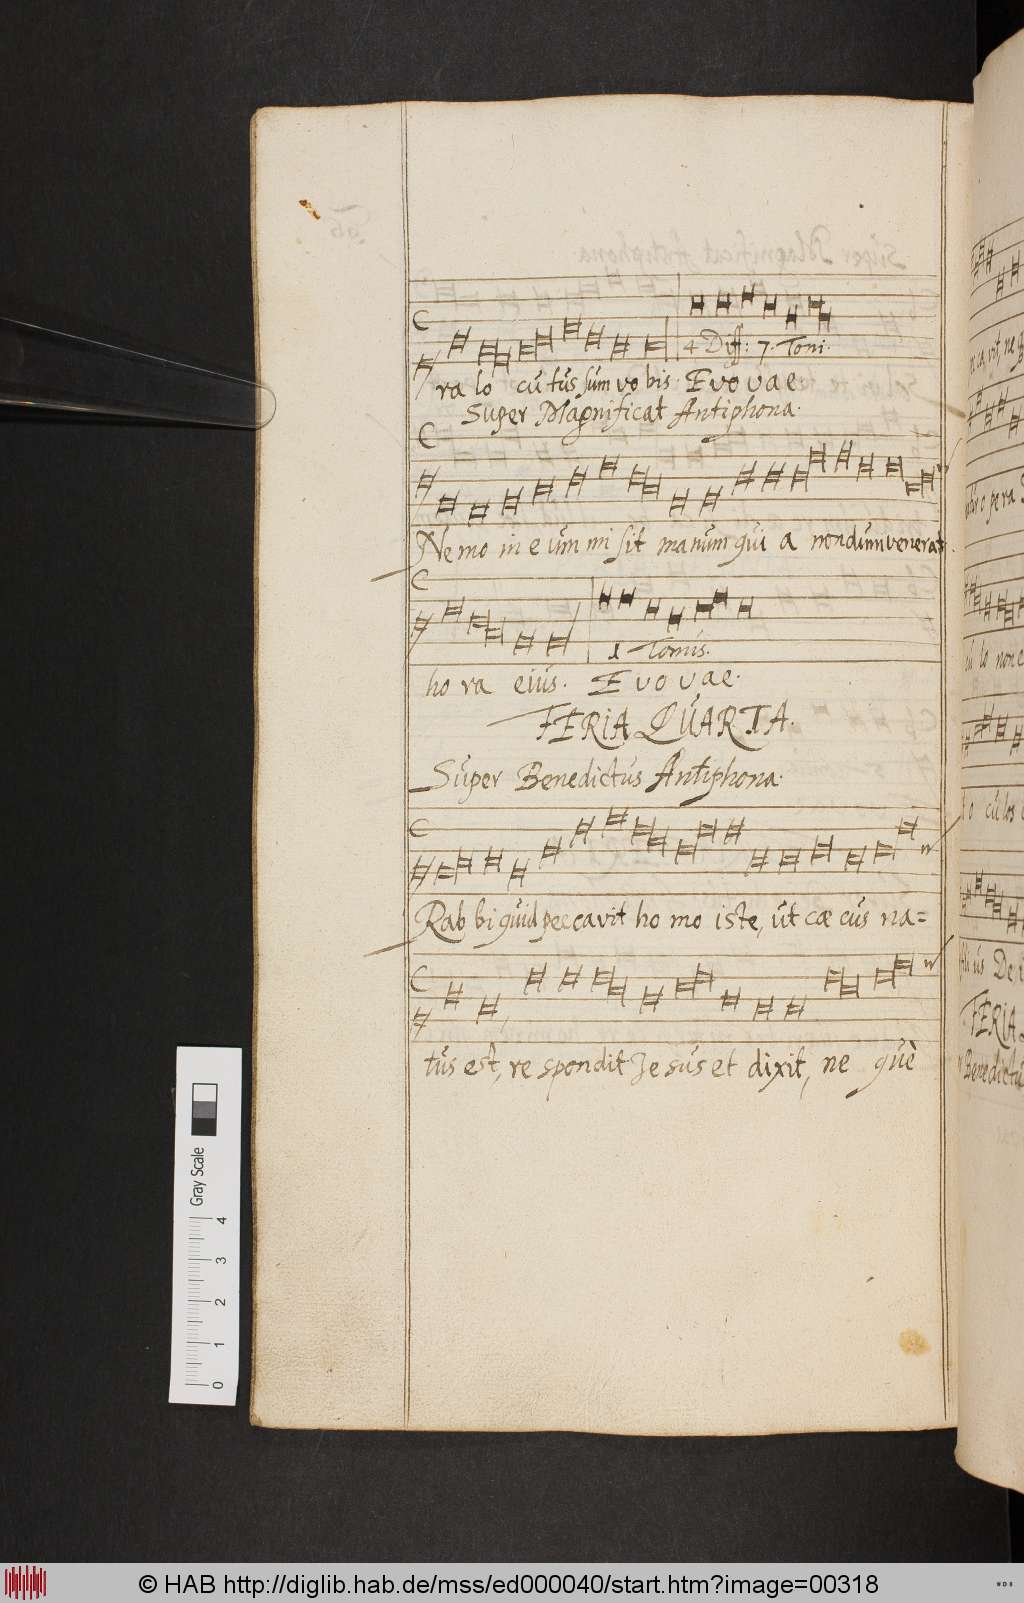 4 Diff: 7. Toni.
ra lo cu tus sum vo bis. E vo vae.
Super Magnificat Antiphona.
Ne mo in e um mi sit manum qui a nondum venerat
1 Tonus.
ho ra eius. E vo vae.
FERIA QUARTA.
Super Benedictus Antiphona.
Rab bi quid peccavit ho mo iste, ut cæ cus na=
tus est, re spondit Je sus et dixit, ne què
Gray Scale
0 1 2 3 4
© HAB http://diglib.hab.de/mss/ed000040/start.htm?image=00318